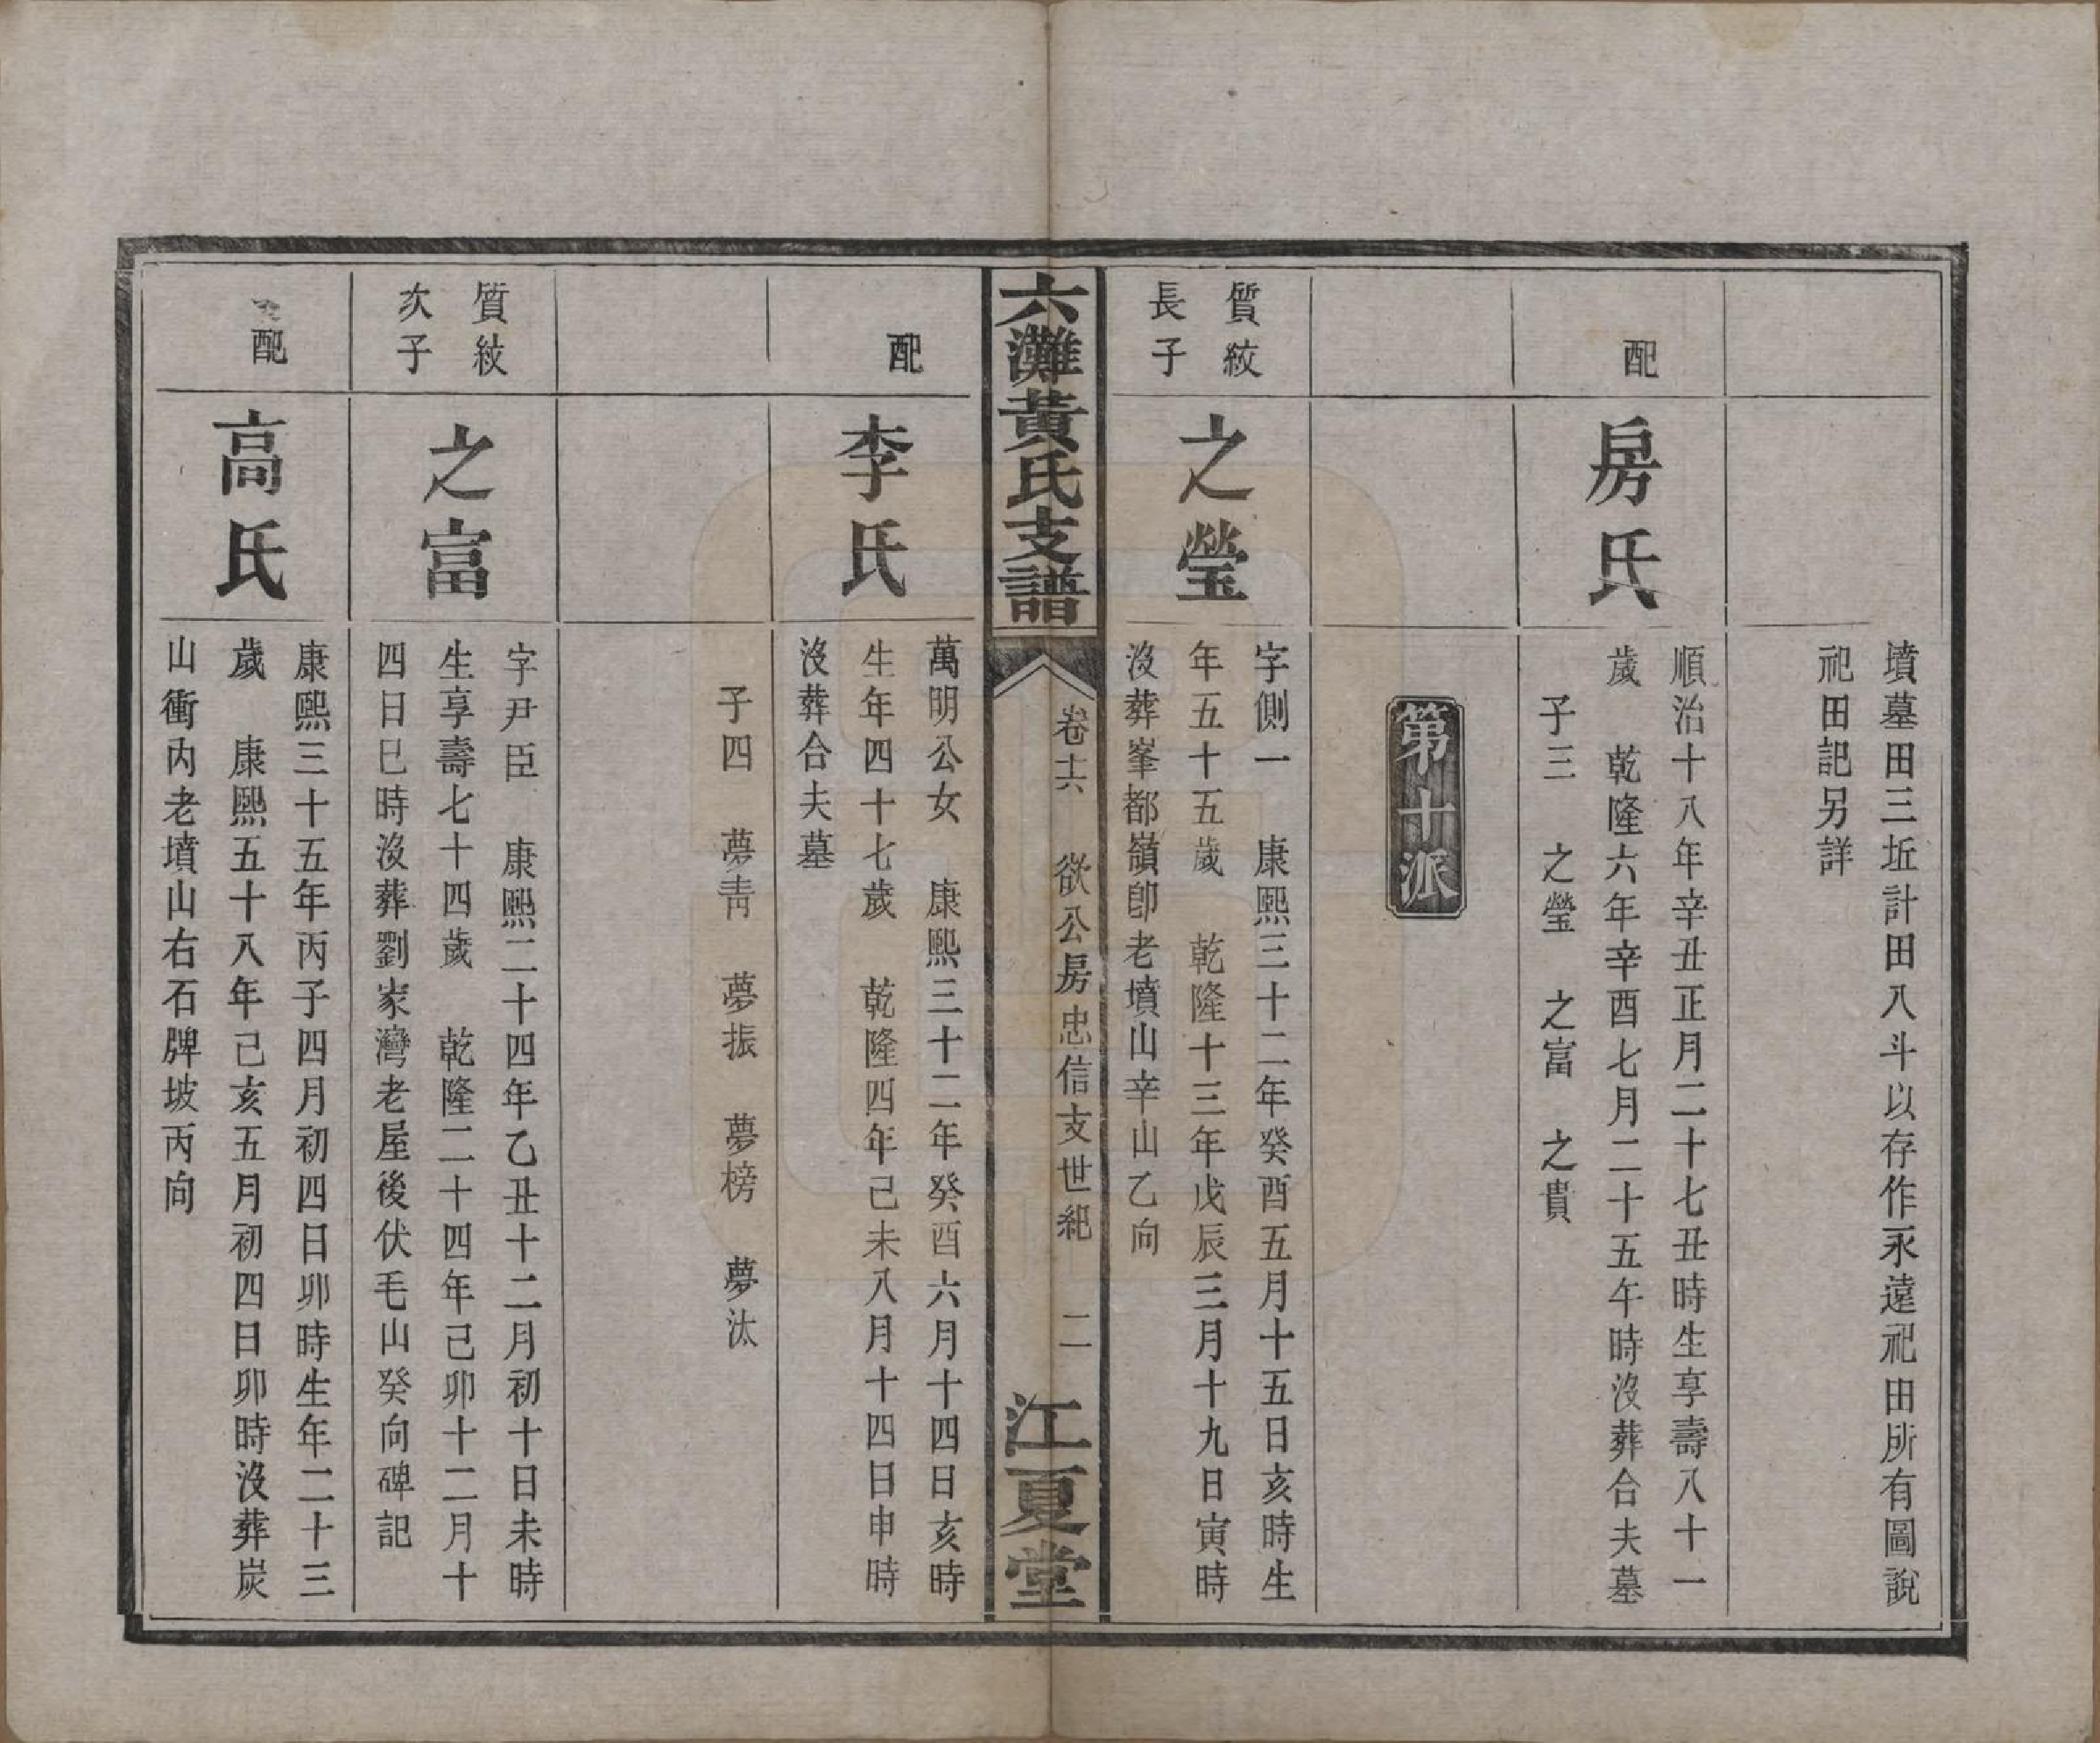 墳墓田三坵計田八斗以存作永遠祀田所有圖說
祀田記另詳
配
房氏
順治十八年辛丑正月二十七丑時生享壽八十一
歲　乾隆六年辛酉七月二十五午時沒葬合夫墓
子三　之瑩　之富　之貴
第十派
質紋
長子
之瑩
字側一　康熙三十二年癸酉五月十五日亥時生
年五十五歲　乾隆十三年戊辰三月十九日寅時
沒葬峯都嶺卽老墳山辛山乙向
六灘黃氏支譜
卷十六　欲公房忠信支世紀　二
江夏堂
配
李氏
萬明公女　康熙三十二年癸酉六月十四日亥時
生年四十七歲　乾隆四年己未八月十四日申時
沒葬合夫墓
子四　夢青　夢振　夢榜　夢汰
質紋
次子
之富
字尹臣　康熙二十四年乙丑十二月初十日未時
生享壽七十四歲　乾隆二十四年己卯十二月十
四日巳時沒葬劉家灣老屋後伏毛山癸向碑記
配
高氏
康熙三十五年丙子四月初四日卯時生年二十三
歲　康熙五十八年己亥五月初四日卯時沒葬炭
山衝內老墳山右石牌坡丙向